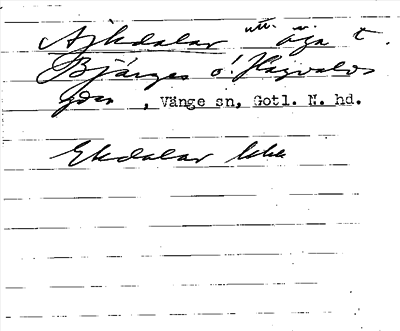 Ajkdalar utt. n. äga t.
Bjärges o. Hagvalds
gdr , Vänge sn, Gotl. N. hd.
Ekdalar